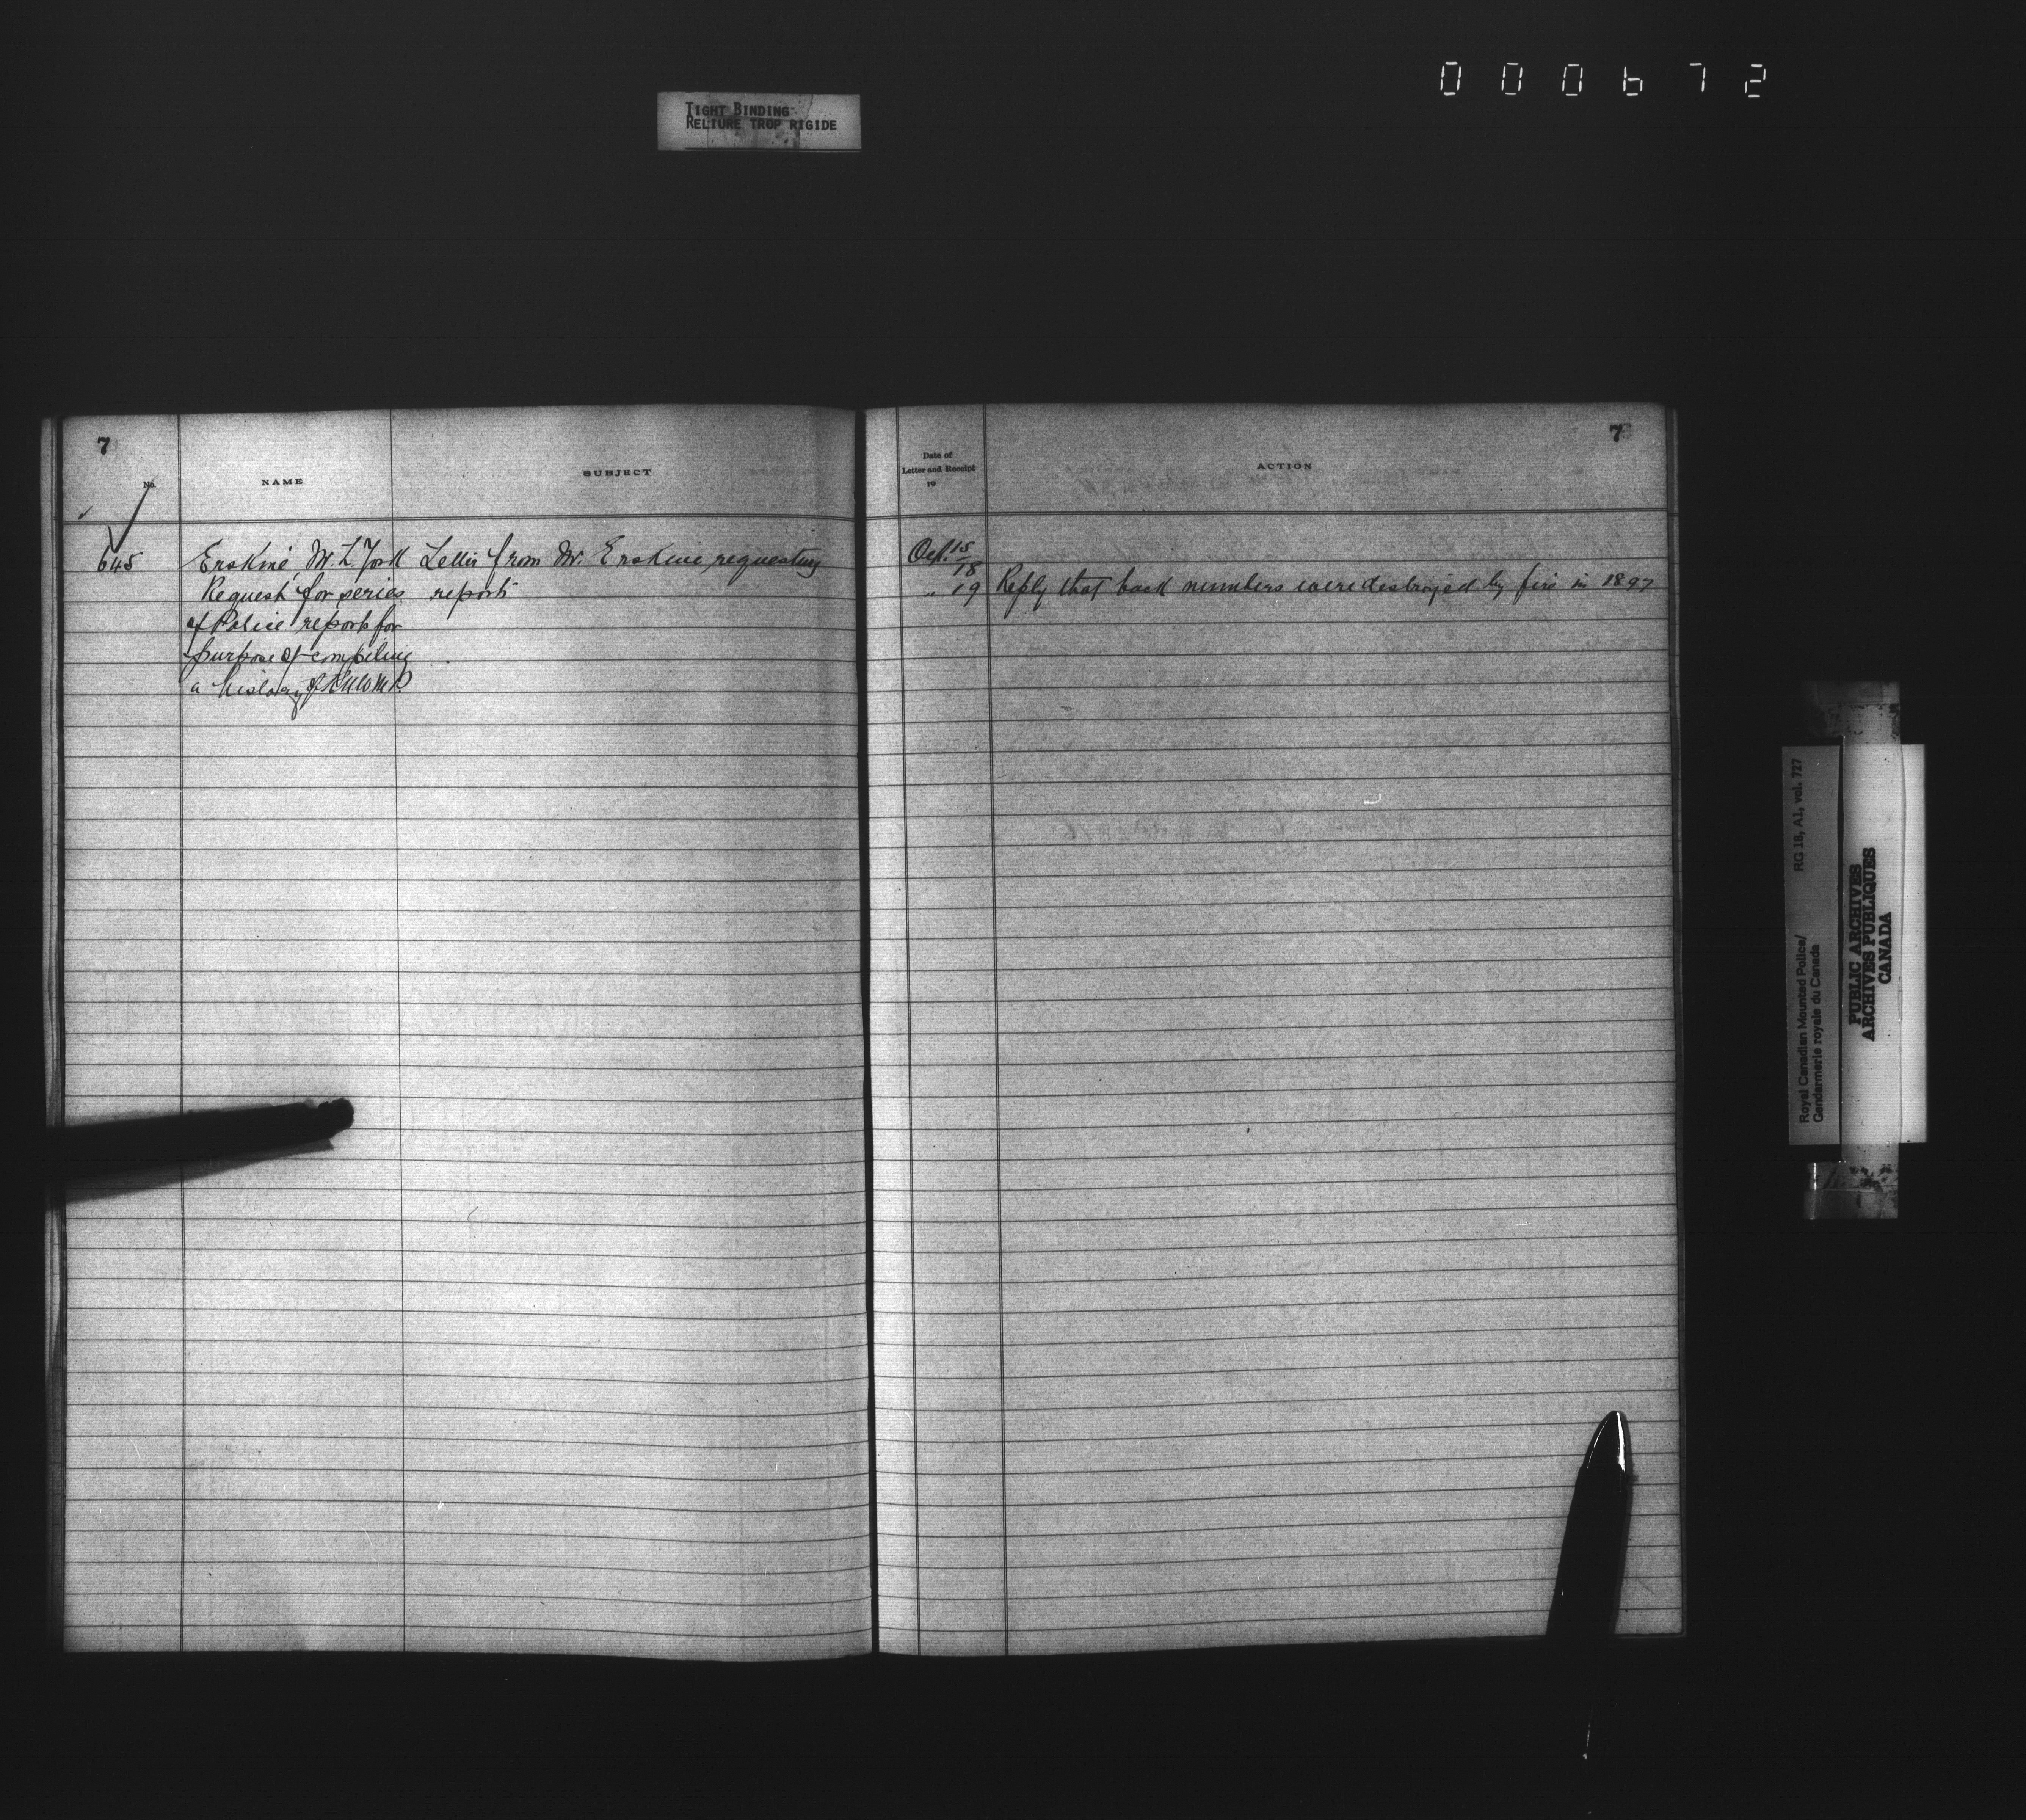 000672
TIGHT BINDING
RELIURE TROP RIGIDE
7
No.
NAME
SUBJECT
645
Erskine, M. L. York
Request for series
of Police reports for
purpose of compiling
a history of RNWMP
Letter from Mr. Erskine requesting
reports
7
Date of
Letter and Receipt
19
ACTION
Oct. 15
18
" 19 Reply that back numbers were destroyed by fire in 1897
RG 18, A1, vol. 727
Royal Canadian Mounted Police/
Gendarmerie royale du Canada
PUBLIC ARCHIVES
ARCHIVES PUBLIQUES
CANADA